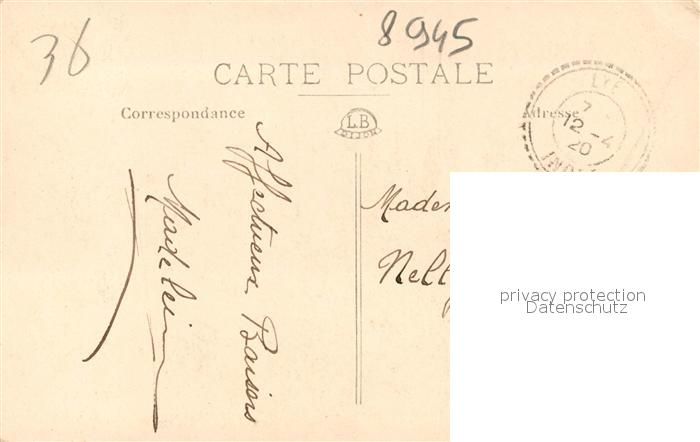 36
8945
CARTE POSTALE
Correspondance
L.B
DIJON
Adresse
LYE
7
12 - 4
20
IND
Affectueux Baisers
Madeleine
Madem
Nelly
privacy protection
Datenschutz